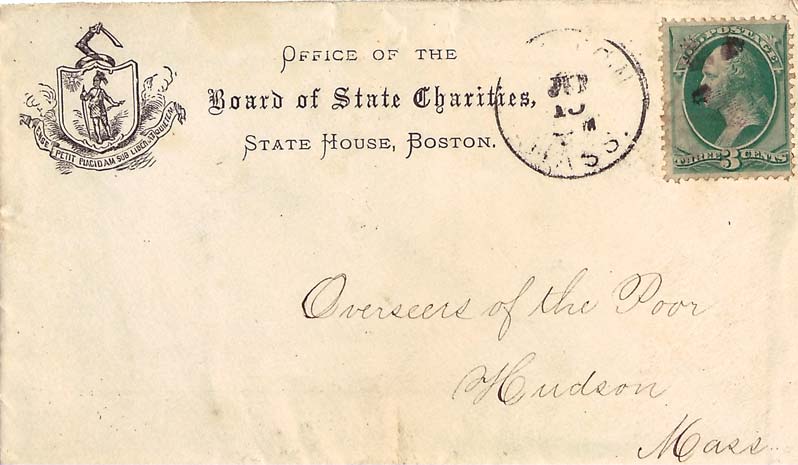 OFFICE OF THE
Board of State Charities,
STATE HOUSE, BOSTON.
PETIT PLACIDAM SUB LIBERTATE QUIETEM
MASS.
U.S. POSTAGE
THREE 3 CENTS
Overseers of the Poor
Hudson
Mass